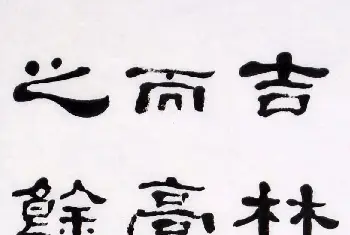 吉林
而高
之餘